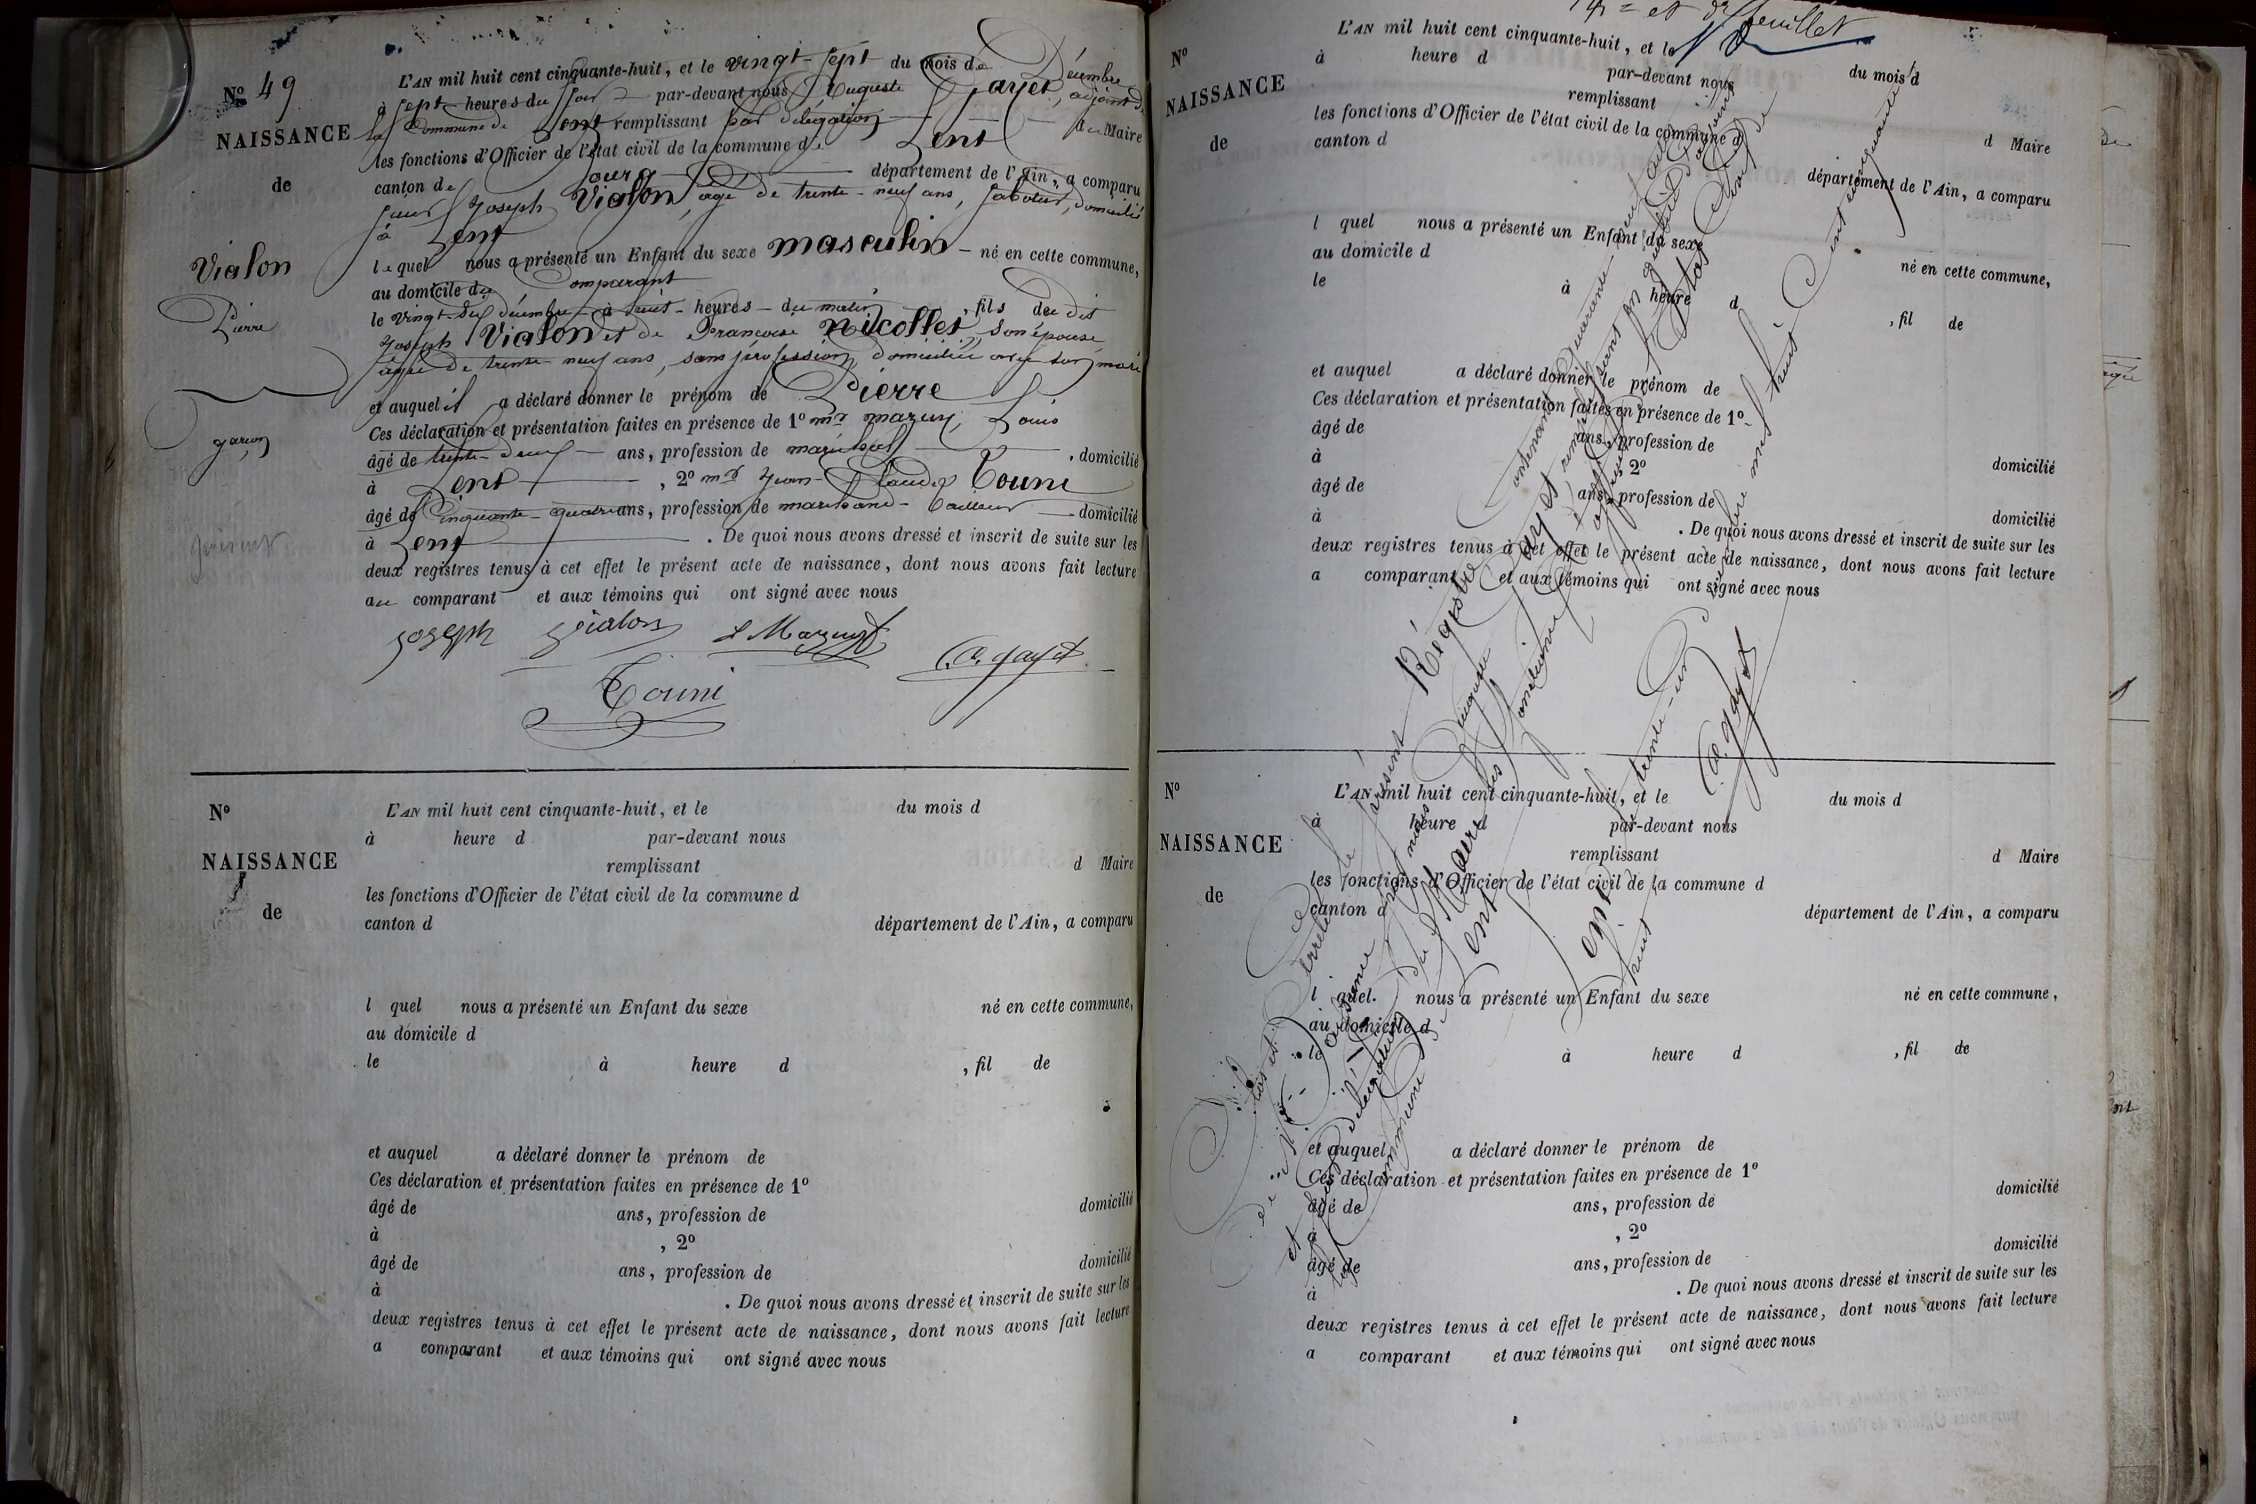 Nº 49
NAISSANCE
de
Vialon
Pierre
garçon
L'AN mil huit cent cinquante-huit, et le vingt-sept du mois de Décembre
à sept heures du soir par-devant nous Auguste Gayet, adjoint de
la commune de Lent remplissant par délégation de Maire
les fonctions d'Officier de l'état civil de la commune de Lent
canton de département de l'Ain, a comparu
sieur Joseph Vialon, âgé de trente-neuf ans, sabotier, domicilié
à Lent
lequel nous a présenté un Enfant du sexe masculin né en cette commune,
au domicile du Comparant
le vingt-six décembre à huit heures du matin, fils du dit
Joseph Vialon et de Françoise Nicollet, son épouse
âgée de trente-neuf ans, sans profession, domiciliée avec son mari
et auquel il a déclaré donner le prénom de Pierre
Ces déclaration et présentation faites en présence de 1º mr mazuy, Louis
âgé de trente-deux ans, profession de maréchal, domicilié
à Lent, 2º mr Jean-Claude Touni
âgé de Cinquante-quatre ans, profession de marchand-Tailleur domicilié
à Lent. De quoi nous avons dressé et inscrit de suite sur les
deux registres tenus à cet effet le présent acte de naissance, dont nous avons fait lecture
au comparant et aux témoins qui ont signé avec nous
joseph vialon L Mazuy A. gayet
Touni
Nº
NAISSANCE
de
L'AN mil huit cent cinquante-huit, et le du mois d
à heure d par-devant nous
remplissant d Maire
les fonctions d'Officier de l'état civil de la commune d
canton d département de l'Ain, a comparu
l quel nous a présenté un Enfant du sexe né en cette commune,
au domicile d
le à heure d , fil de
et auquel a déclaré donner le prénom de
Ces déclaration et présentation faites en présence de 1º
âgé de ans, profession de domicilié
à , 2º
âgé de ans, profession de domicilié
à . De quoi nous avons dressé et inscrit de suite sur les
deux registres tenus à cet effet le présent acte de naissance, dont nous avons fait lecture
a comparant et aux témoins qui ont signé avec nous
et feuillet
Nº
NAISSANCE
de
L'AN mil huit cent cinquante-huit, et le du mois d
à heure d par-devant nous
remplissant d Maire
les fonctions d'Officier de l'état civil de la commune d
canton d département de l'Ain, a comparu
l quel nous a présenté un Enfant du sexe né en cette commune,
au domicile d
le à heure d , fil de
et auquel a déclaré donner le prénom de
Ces déclaration et présentation faites en présence de 1º
âgé de ans, profession de domicilié
à 2º
âgé de ans, profession de domicilié
à . De quoi nous avons dressé et inscrit de suite sur les
deux registres tenus à cet effet le présent acte de naissance, dont nous avons fait lecture
a comparant et aux témoins qui ont signé avec nous
Nº
NAISSANCE
de
L'AN mil huit cent cinquante-huit, et le du mois d
à heure d par-devant nous
remplissant d Maire
les fonctions d'Officier de l'état civil de la commune d
canton d département de l'Ain, a comparu
l quel. nous a présenté un Enfant du sexe né en cette commune,
au domicile d
le à heure d , fil de
et auquel a déclaré donner le prénom de
Ces déclaration et présentation faites en présence de 1º
âgé de ans, profession de domicilié
à , 2º
âgé de ans, profession de domicilié
à . De quoi nous avons dressé et inscrit de suite sur les
deux registres tenus à cet effet le présent acte de naissance, dont nous avons fait lecture
a comparant et aux témoins qui ont signé avec nous
Clos et arrêté le présent Régistre Contenant Quarante-neuf actes
de Naissance par nous Auguste Gayet remplissant en qualité d'adjoint
et par délégation du Maire les fonctions d'officier de l'Etat Civil de
la Commune de Lent
trente-un décembre mil huit Cent cinquante
huit
A. gayet